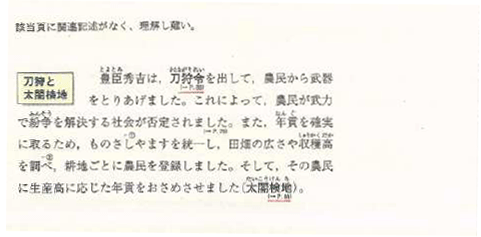 該当頁に関連記述がなく、理解し難い。
刀狩と
太閤検地
とよとみ
豊臣秀吉は，刀狩令を出して，農民から武器
をとりあげました。これによって，農民が武力
ふんそう
で紛争を解決する社会が否定されました。また，年貢を確実
しゅうかくだか
に取るため，ものさしやますを統一し，田畑の広さや収穫高
を調べ，耕地ごとに農民を登録しました。そして，その農民
たいこうけんち
に生産高に応じた年貢をおさめさせました(太閤検地)。